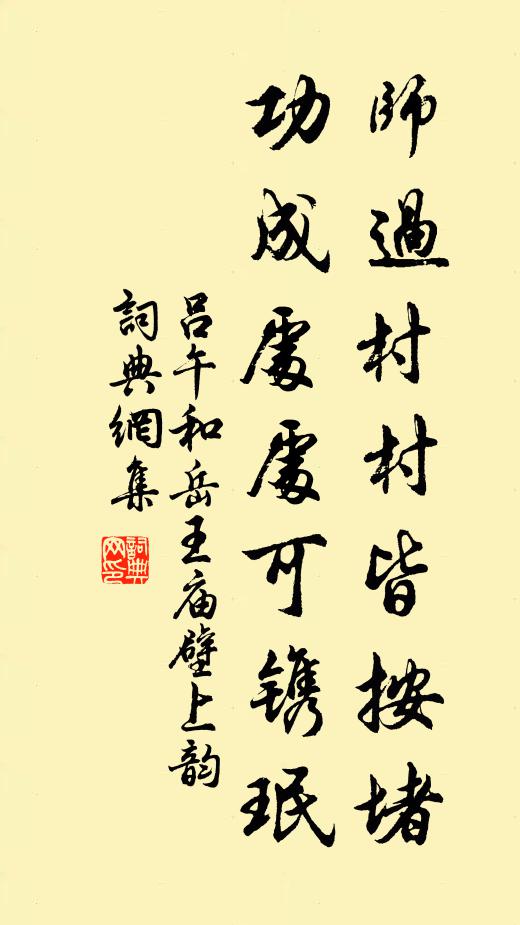 師過村村皆按堵
功成處處可镌珉
吕午和岳王庙壁上韵
詞典網集
詞典網印